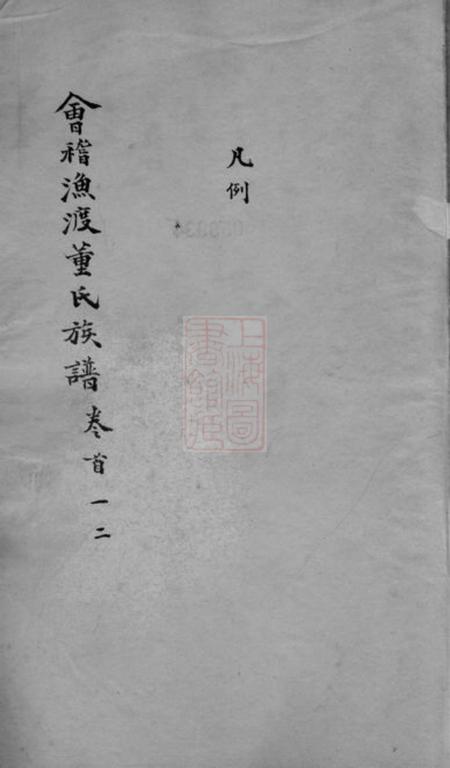 凡例
會稽漁渡董氏族譜 卷首 一 二
上海圖
書館